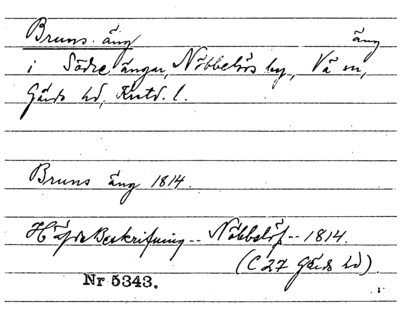 Bruns äng äng
i Södre ängar, Nöbbelövs by, Vä sn,
Gärds hd, Krist. l.
Bruns äng 1814.
Häfde Beskrifning -- Nöbbelöf -- 1814.
(C 27 Gärds hd)
Nr 5343.